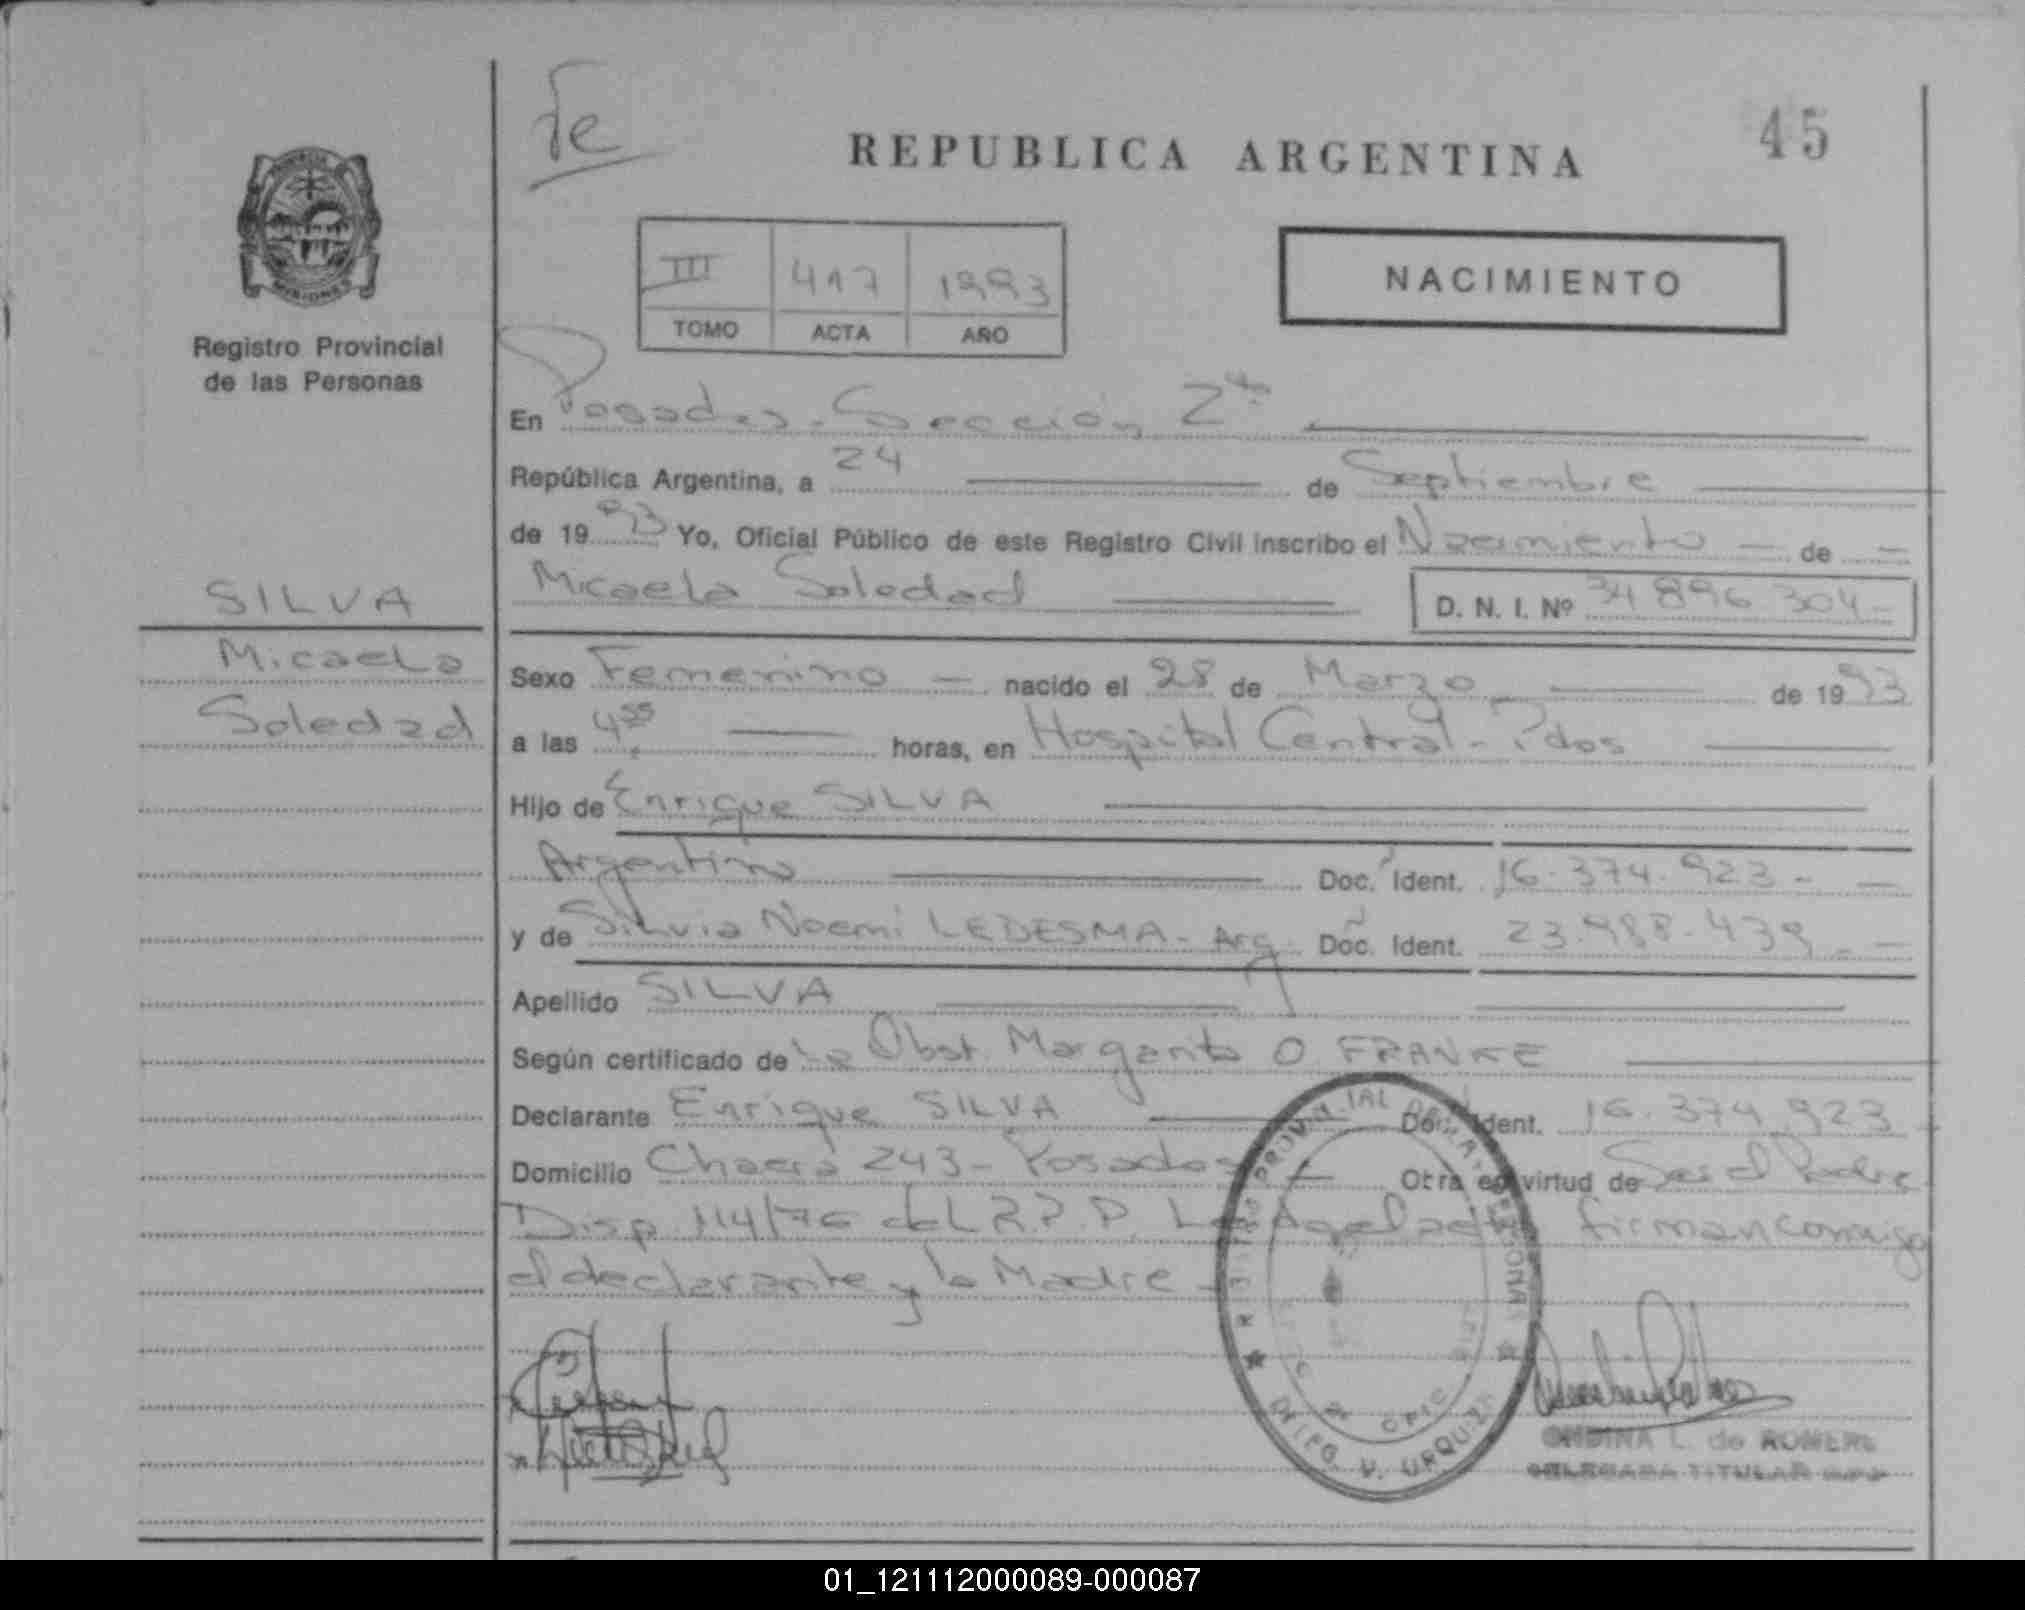 Fe
REPUBLICA ARGENTINA
45
III 417 1993
TOMO ACTA AÑO
NACIMIENTO
MISIONES
Registro Provincial
de las Personas
En Posadas - Sección 2ª
República Argentina, a 24 de Septiembre
de 1993 Yo, Oficial Público de este Registro Civil inscribo el Nacimiento - de -
Micaela Soledad
D. N. I. Nº 34 896 304-
SILVA
Micaela
Soledad
Sexo Femenino - nacido el 28 de Marzo de 1993
a las 4 55 horas, en Hospital Central - Pdas
Hijo de Enrique SILVA
Argentino Doc. Ident. 16.374.923 -
y de Silvia Noemi LEDESMA - Arg. Doc. Ident. 23.988.439 -
Apellido SILVA
Según certificado de La Obst. Margarita O FRANKE
Declarante Enrique SILVA Doc. Ident. 16.374.923
Domicilio Chacra 243 - Posadas - Obra en virtud de Ser el Padre
Disp. 114/76 del R.P.P. firman conmigo
el declarante y la Madre -
DELEG. V. URQUIZA
ONDINA L. de ROMERO
DELEGADA TITULAR
01_121112000089-000087